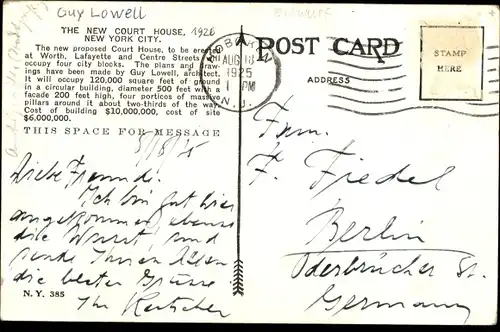 Guy Lowell
THE NEW COURT HOUSE, 1926
NEW YORK CITY.
The new proposed Court House, to be erected
at Worth, Lafayette and Centre Streets will
occupy four city blocks. The plans and draw-
ings have been made by Guy Lowell, architect.
It will occupy 120,000 square feet of ground
in a circular building, diameter 500 feet with a
facade 200 feet high, four portices of massive
pillars around it about two-thirds of the way.
Cost of building $10,000,000, cost of site
$6,000,000.
THIS SPACE FOR MESSAGE
8/18/25
Liebe Freunde!
Ich bin gut hier
angekommen, ebenso
die Wurst, und
sende Ihnen allen
die besten Grüsse
Ihr
N. Y. 385
HOBOKEN
AUG 18
1 PM
1925
N.J.
POST CARD
ADDRESS
STAMP
HERE
Fam.
F. Fiedel
Berlin
Oderbrücher St.
Germany